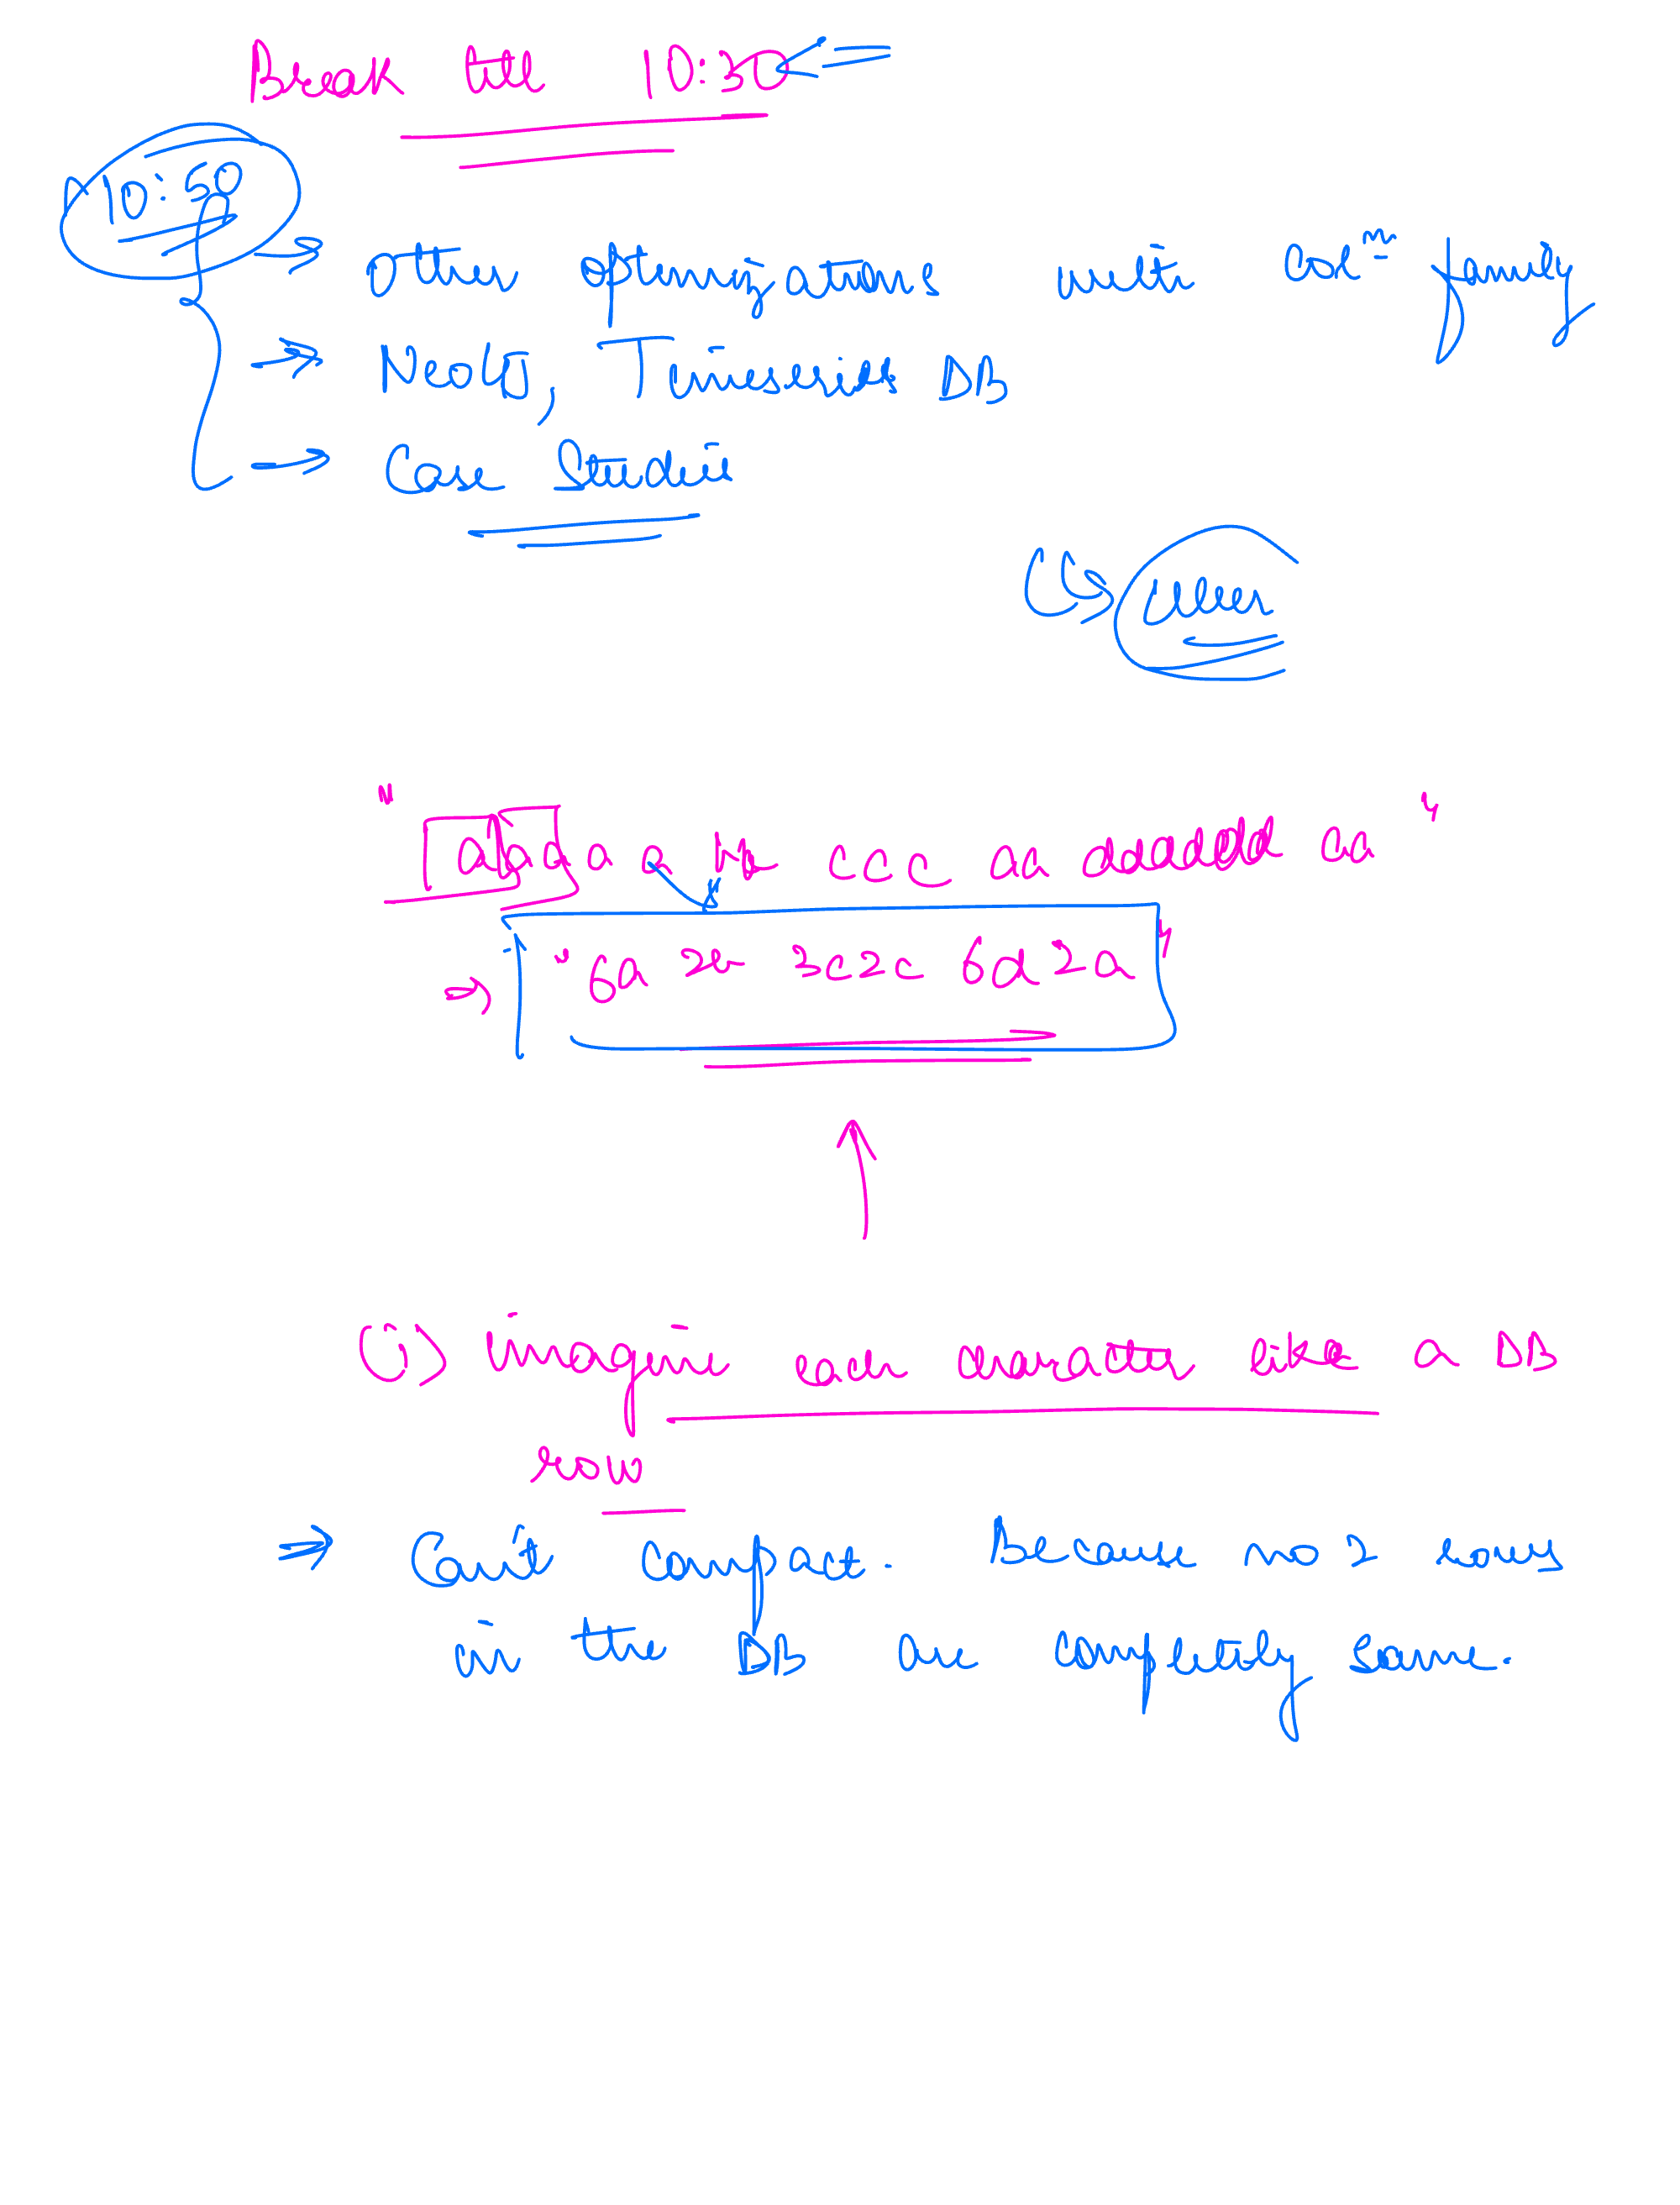 Break till 10:30
10:50
→ Other optimizations with colⁿ family
→ Neo4J, Timeseries DB
→ Case Studies
"aaaa a a bb ccc aa dddddd aa"
⇒ "6a 2b 3c2c 6d2a"
(i) imagine each character like a DB
row
⇒ Can't compact. Because no 2 rows
in the DB are completely same.